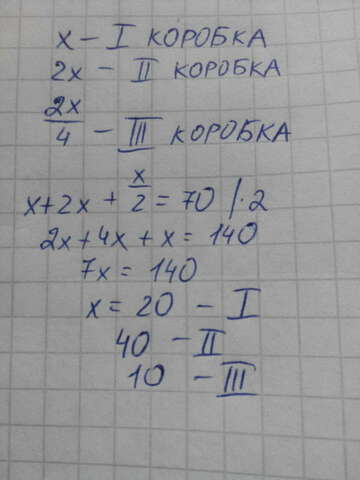 x – I КОРОБКА
2x – II КОРОБКА
2x/4 – III КОРОБКА
x+2x+x/2=70 /·2
2x+4x+x=140
7x=140
x=20 – I
40 – II
10 – III